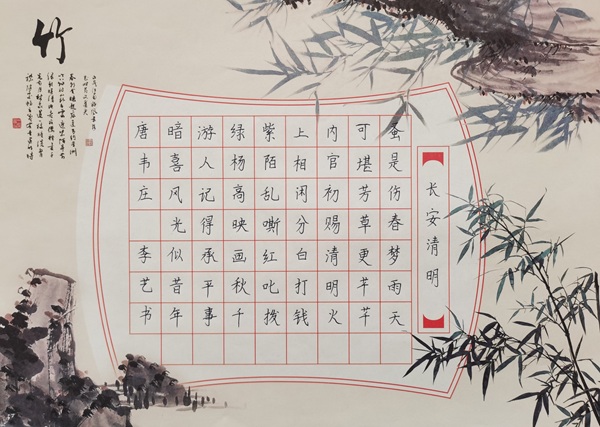 长安清明
蚤是伤春梦雨天
可堪芳草更芊芊
内官初赐清明火
上相闲分白打钱
紫陌乱嘶红叱拨
绿杨高映画秋千
游人记得承平事
暗喜风光似昔年
唐韦庄 李艺书
竹